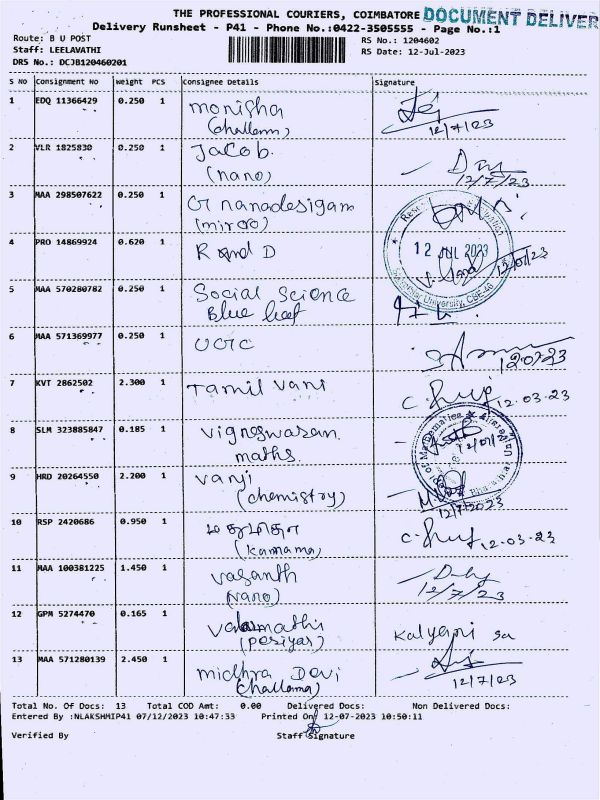 THE PROFESSIONAL COURIERS, COIMBATORE DOCUMENT DELIVER
Delivery Runsheet - P41 - Phone No.:0422-3505555 - Page No.:1
Route: B U POST
Staff: LEELAVATHI
DRS No.: DCJB120460201
RS No.: 1204602
RS Date: 12-Jul-2023
S NO Consignment No Weight PCS Consignee Details Signature
1 EDQ 11366429 0.250 1 monisha
(challam) 12/7/23
2 VLR 1825830 0.250 1 Jacob.
(nano) 12/7/23
3 MAA 298507622 0.250 1 G nanadesigam
(micro)
4 PRO 14869924 0.620 1 R and D
12 JUL 2023
University, CBE-46
5 MAA 570280782 0.250 1 Social Science
Blue leaf
6 MAA 571369977 0.250 1 UGC
7 KVT 2862502 2.300 1 Tamil vani 12.03.23
8 SLM 323885847 0.185 1 vigneswaran.
maths
of Mathematics
9 HRD 20264550 2.200 1 vanji
(chemistry) 12/7/2023
10 RSP 2420686 0.950 1
(kannama) 12-03-23
11 MAA 100381225 1.450 1 vasanth
(nano) 12/7/23
12 GPM 5274470 0.165 1 valarmathi
(periyar) Kalyani
13 MAA 571280139 2.450 1 midhra Devi
(challama) 12/7/23
Total No. Of Docs: 13 Total COD Amt: 0.00 Delivered Docs: Non Delivered Docs:
Entered By :NLAKSHMIP41 07/12/2023 10:47:33 Printed On: 12-07-2023 10:50:11
Verified By Staff Signature